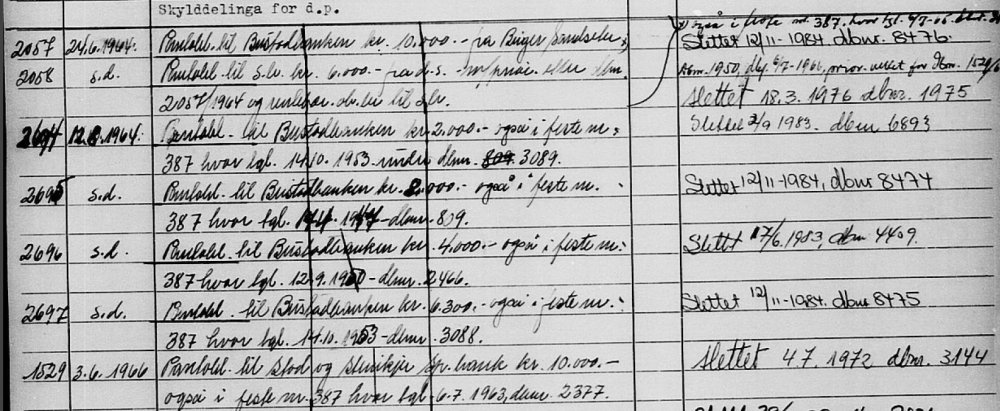 Skylddelinga for d.p.
også i feste nr. 387, hvor tgl.
2057 24.6.1964. Panteobl. til Bustadbanken kr. 10.000.- fra Birger
Slettet 12/11-1984. dbnr. 8476.
2058 s.d. Panteobl. til s.b. kr. 6.000.- fra d.s. - m/prior. etter dbnr.
dbnr. 1950, dgf. 6/7-1966, prior. veket for dbnr. 1529/6
2057/1964 og
Slettet 18.3.1976 dbnr. 1975
2694 12.8.1964. Panteobl. til Bustadbanken kr. 2.000.- også i feste nr.
Slettet 2/9 1983. dbnr 6893
387 hvor tgl. 14.10.1953 under dbnr. 3089.
2695 s.d. Panteobl. til Bustadbanken kr. 2.000.- også i feste nr.
Slettet 12/11-1984, dbnr 8474
387 hvor tgl. 1947 - dbnr. 809.
2696 s.d. Panteobl. til Bustadbanken kr. 4.000.- også i feste nr.
Slettet 17/6.1983, dbnr 4409.
387 hvor tgl. 12.9.1950 - dbnr. 2466.
2697 s.d. Panteobl. til Bustadbanken kr. 6.300.- også i feste nr.
Slettet 12/11-1984. dbnr 8475
387 hvor tgl. 14.10.1953 - dbnr. 3088.
1529 3.6.1966 Panteobl. til Stod og Steinkjer sp.bank kr. 10.000.-
Slettet 4.7.1972 dbnr. 3144
også i feste nr. 387 hvor tgl. 6.7.1963, dbnr. 2377.